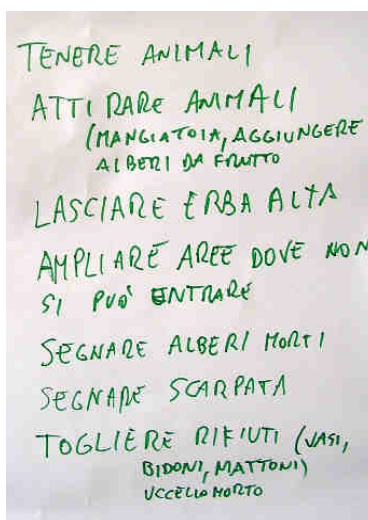 TENERE ANIMALI
ATTIRARE ANIMALI
(MANGIATOIA, AGGIUNGERE
ALBERI DA FRUTTO
LASCIARE ERBA ALTA
AMPLIARE AREE DOVE NON
SI PUÒ ENTRARE
SEGNARE ALBERI MORTI
SEGNARE SCARPATA
TOGLIERE RIFIUTI (VASI,
BIDONI, MATTONI)
UCCELLO MORTO